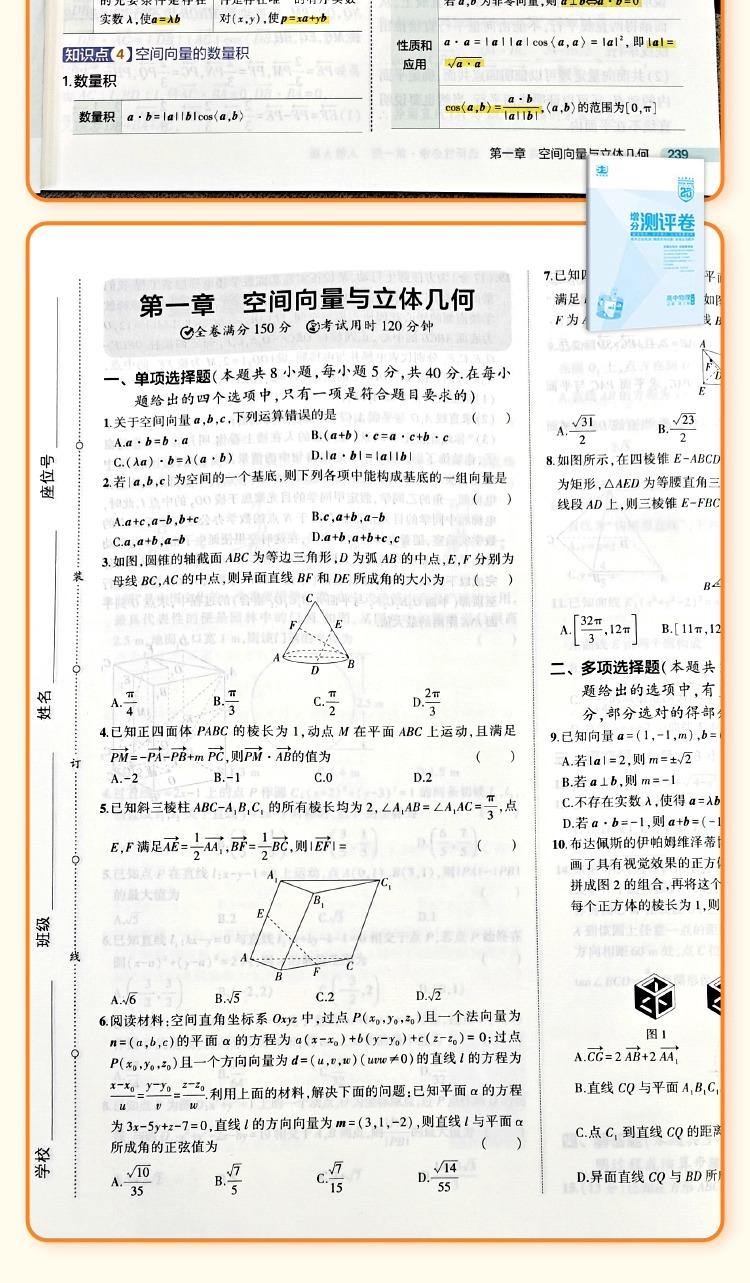 实数λ,使a=λb
对(x,y),使p=xa+yb
知识点(4)空间向量的数量积
1.数量积
数量积 a·b=|a||b|cos⟨a,b⟩
若a,b为非零向量,则a⊥b⇔a·b=0
性质和
应用
a·a=|a||a|cos⟨a,a⟩=|a|²,即|a|=
√a·a
cos⟨a,b⟩=a·b/|a||b|,⟨a,b⟩的范围为[0,π]
第一章 空间向量与立体几何 239
增分测评卷
高中物理
第一章 空间向量与立体几何
全卷满分150分 考试用时120分钟
一、单项选择题(本题共8小题,每小题5分,共40分.在每小
题给出的四个选项中,只有一项是符合题目要求的)
1.关于空间向量a,b,c,下列运算错误的是 ( )
A.a·b=b·a B.(a+b)·c=a·c+b·c
C.(λa)·b=λ(a·b) D.|a·b|=|a||b|
2.若{a,b,c}为空间的一个基底,则下列各项中能构成基底的一组向量是
( )
A.a+c,a-b,b+c B.c,a+b,a-b
C.a,a+b,a-b D.a+b,a+b+c,c
3.如图,圆锥的轴截面ABC为等边三角形,D为弧AB的中点,E,F分别为
母线BC,AC的中点,则异面直线BF和DE所成角的大小为 ( )
C
F E
A B
D
A.π/4 B.π/3 C.π/2 D.2π/3
4.已知正四面体PABC的棱长为1,动点M在平面ABC上运动,且满足
PM=-PA-PB+mPC,则PM·AB的值为 ( )
A.-2 B.-1 C.0 D.2
5.已知斜三棱柱ABC-A₁B₁C₁的所有棱长均为2,∠A₁AB=∠A₁AC=π/3,点
E,F满足AE=1/2AA₁,BF=1/2BC,则|EF|= ( )
A₁ C₁
B₁
E
A C
B F
A.√6 B.√5 C.2 D.√2
6.阅读材料:空间直角坐标系Oxyz中,过点P(x₀,y₀,z₀)且一个法向量为
n=(a,b,c)的平面α的方程为a(x-x₀)+b(y-y₀)+c(z-z₀)=0;过点
P(x₀,y₀,z₀)且一个方向向量为d=(u,v,w)(uvw≠0)的直线l的方程为
x-x₀/u=y-y₀/v=z-z₀/w.利用上面的材料,解决下面的问题:已知平面α的方程
为3x-5y+z-7=0,直线l的方向向量为m=(3,1,-2),则直线l与平面α
所成角的正弦值为 ( )
A.√10/35 B.√7/5 C.√7/15 D.√14/55
座位号
姓名
班级
学校
装
订
线
7.已知
满足
F为
A
F
D
E
A.√31/2 B.√23/2
8.如图所示,在四棱锥E-ABCD
为矩形,△AED为等腰直角三
线段AD上,则三棱锥E-FBC
B
A.[32π/3,12π] B.[11π,12
二、多项选择题(本题共
题给出的选项中,有
分,部分选对的得部分
9.已知向量a=(1,-1,m),b=(
A.若|a|=2,则m=±√2
B.若a⊥b,则m=-1
C.不存在实数λ,使得a=λb
D.若a·b=-1,则a+b=(-1
10.布达佩斯的伊帕姆维泽蒂
画了具有视觉效果的正方
拼成图2的组合,再将这个
每个正方体的棱长为1,则
图1
A.CG=2AB+2AA₁
B.直线CQ与平面A₁B₁C₁
C.点C₁到直线CQ的距离
D.异面直线CQ与BD所